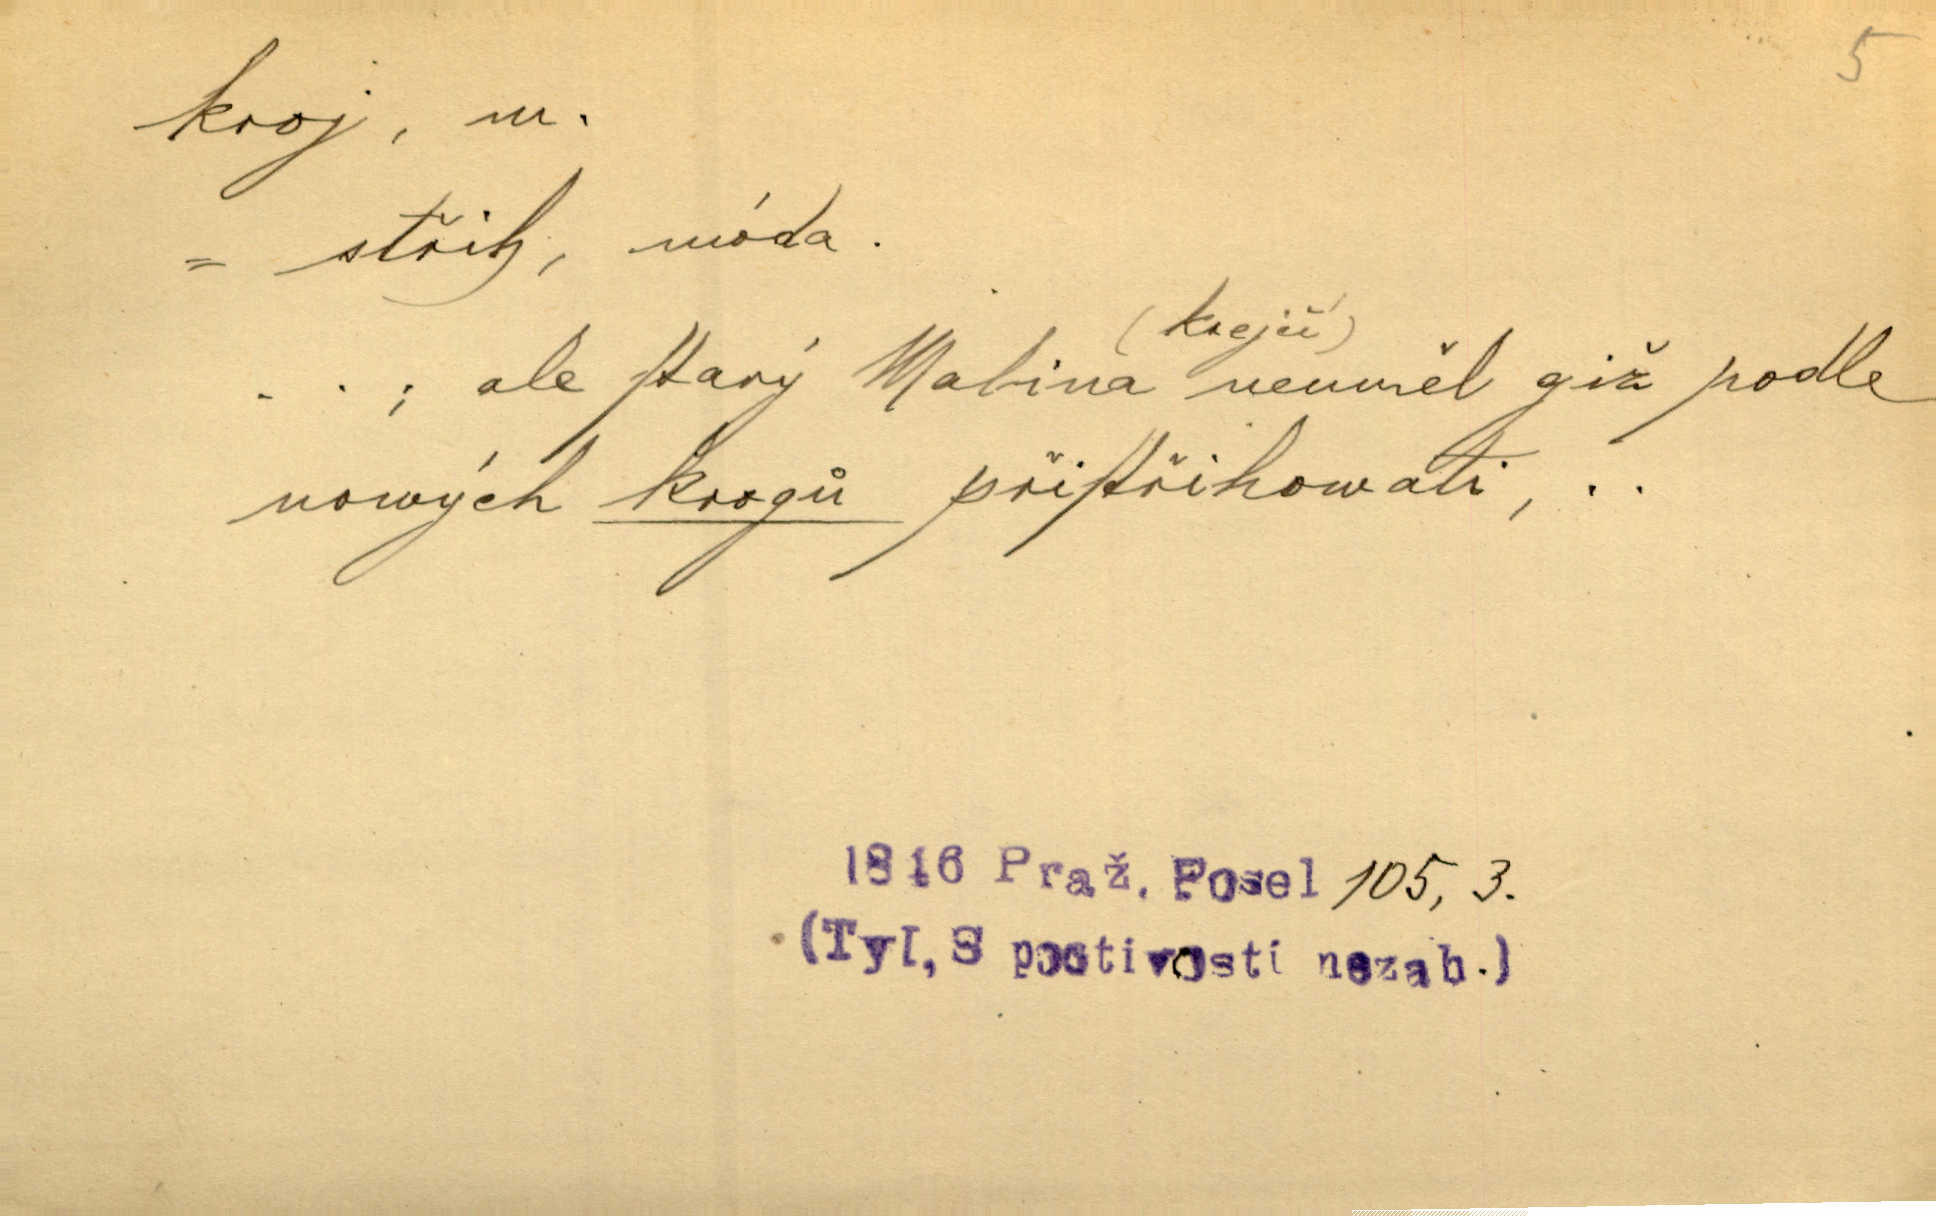 5
kroj, m.
= střih, móda.
(krejčí)
. . ; ale ſtarý Malina neuměl giž podle
nowých krogů přiſtřihowati, . .
1846 Praž. Posel 105, 3.
(Tyl, S poctivostí nezah.)